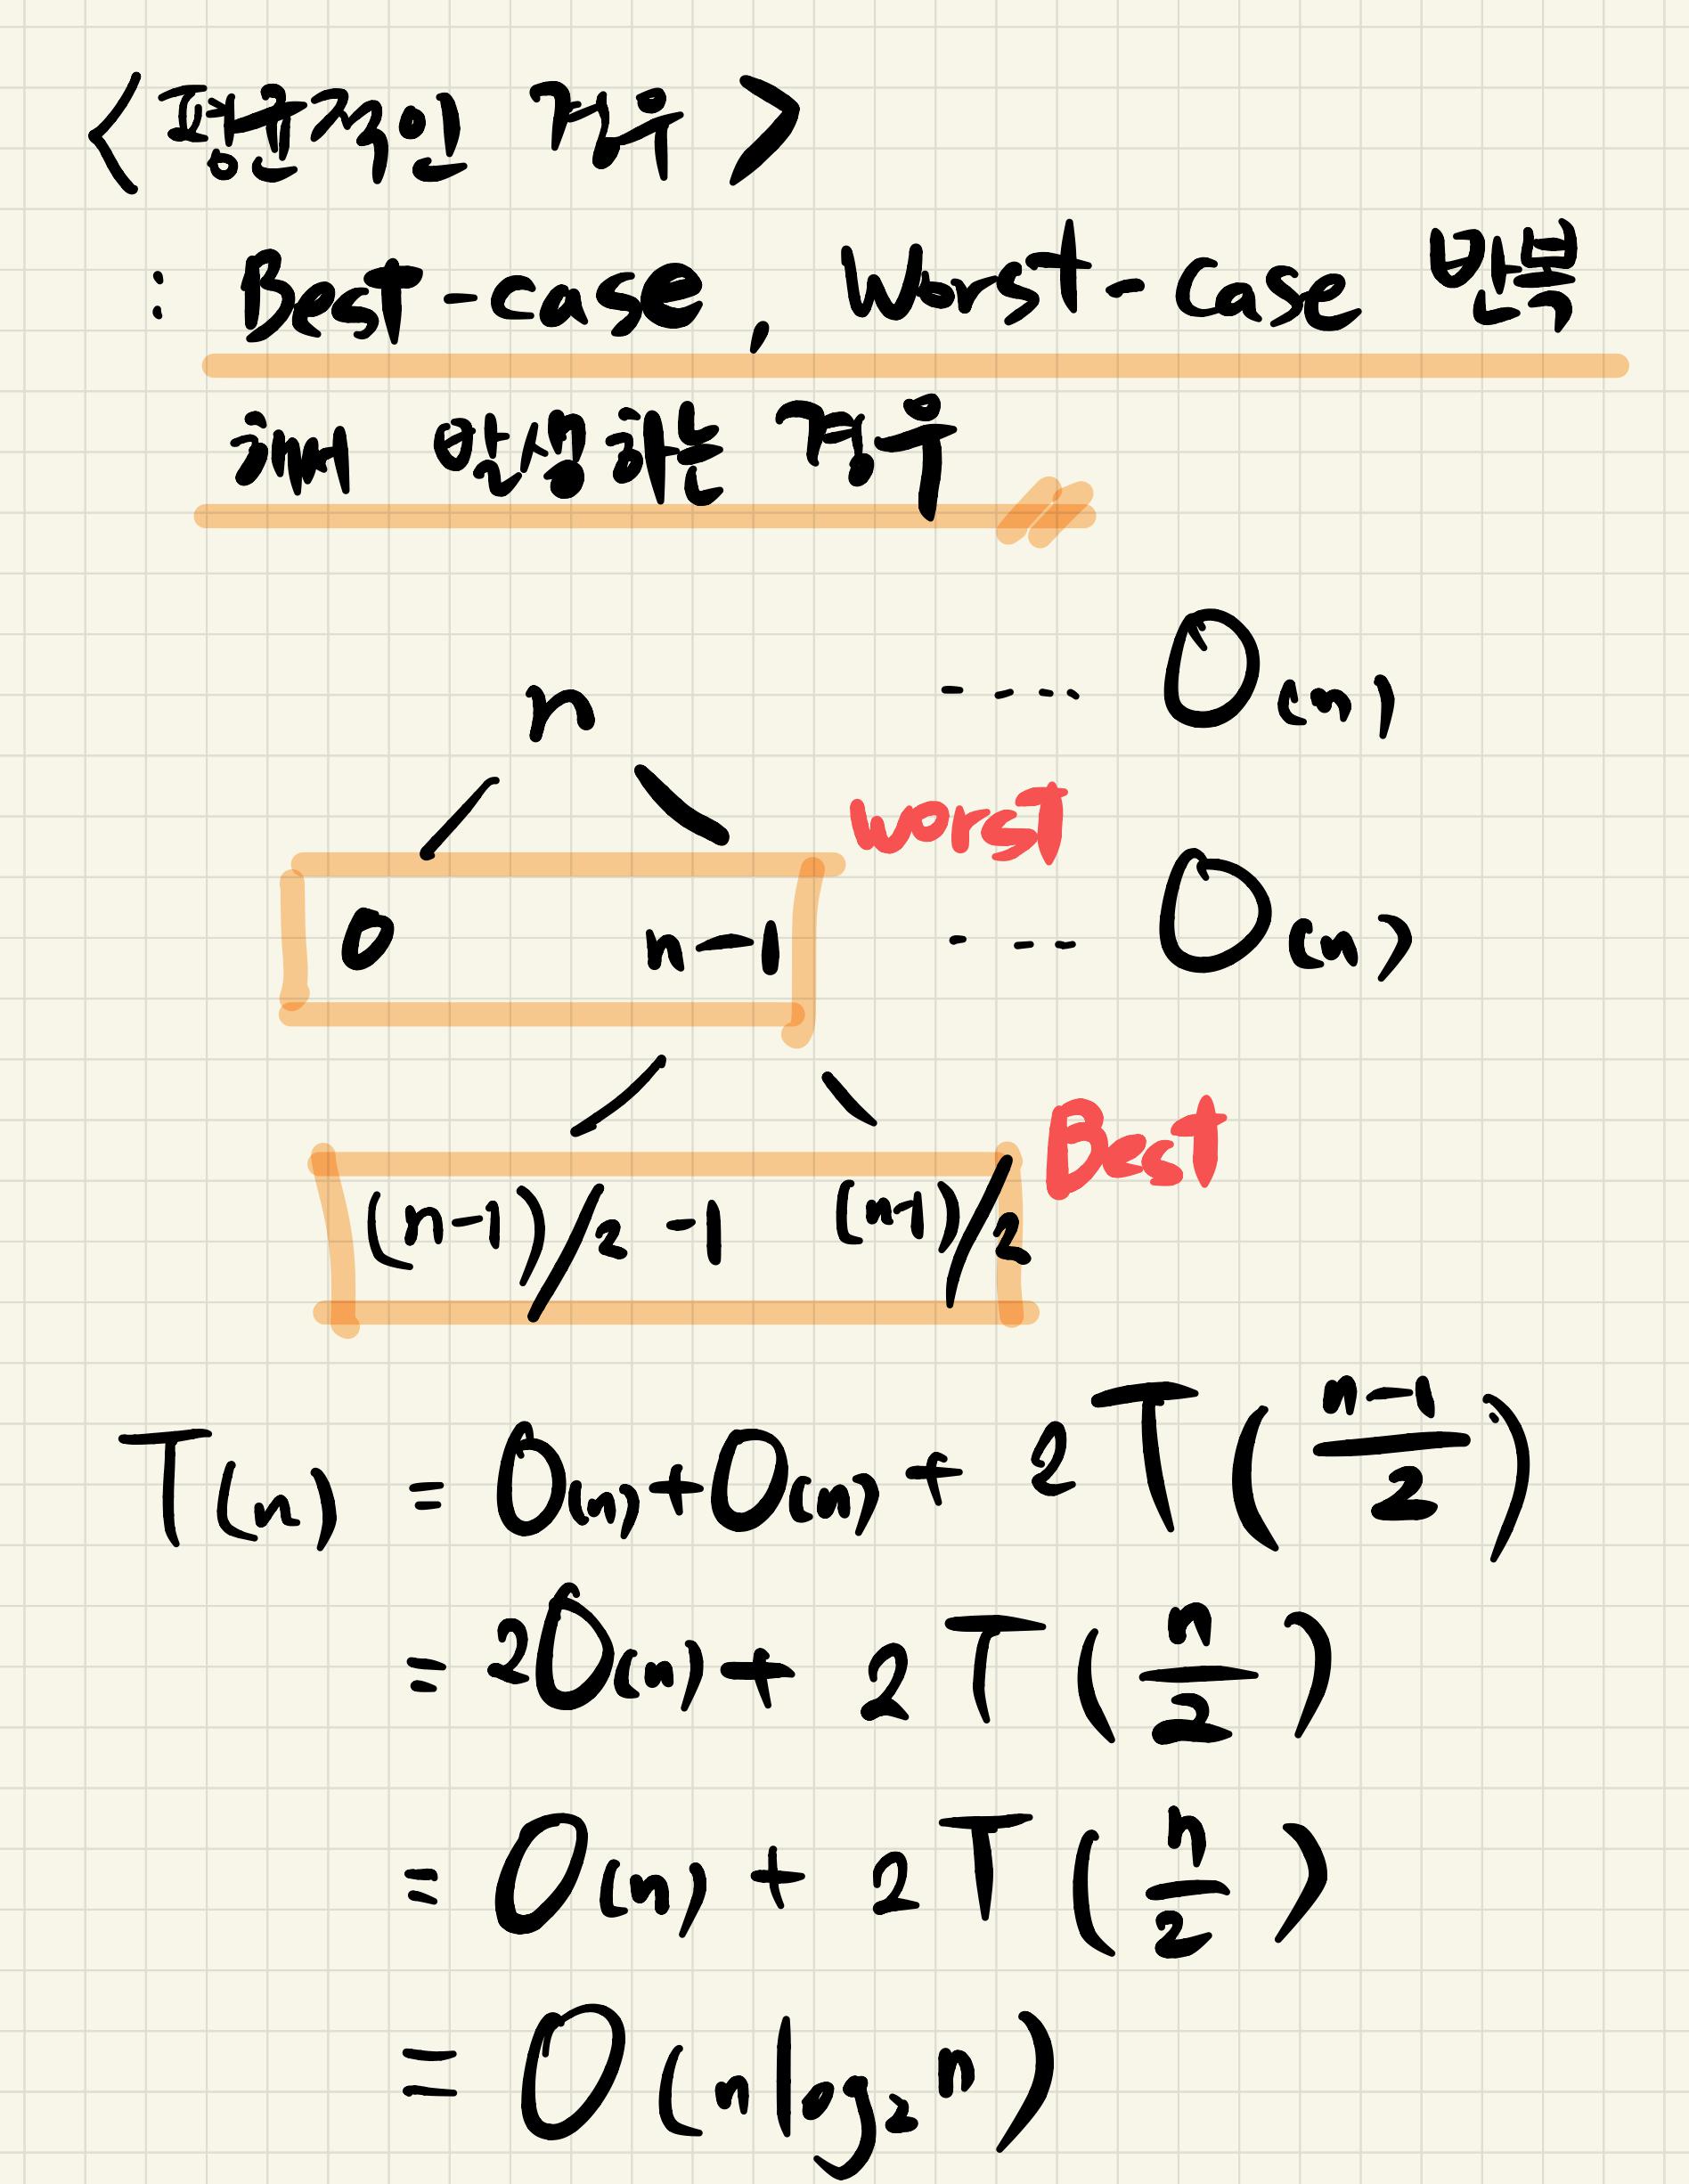 <평균적인 경우>
: Best-case, Worst-case 반복
해서 발생하는 경우
n ---- O(n)
worst
0 n-1 ---- O(n)
Best
(n-1)/2 -1 (n-1)/2
T(n) = O(n)+O(n)+ 2T(n-1/2)
= 2O(n)+ 2T(n/2)
= O(n) + 2T(n/2)
= O(nlog₂n)